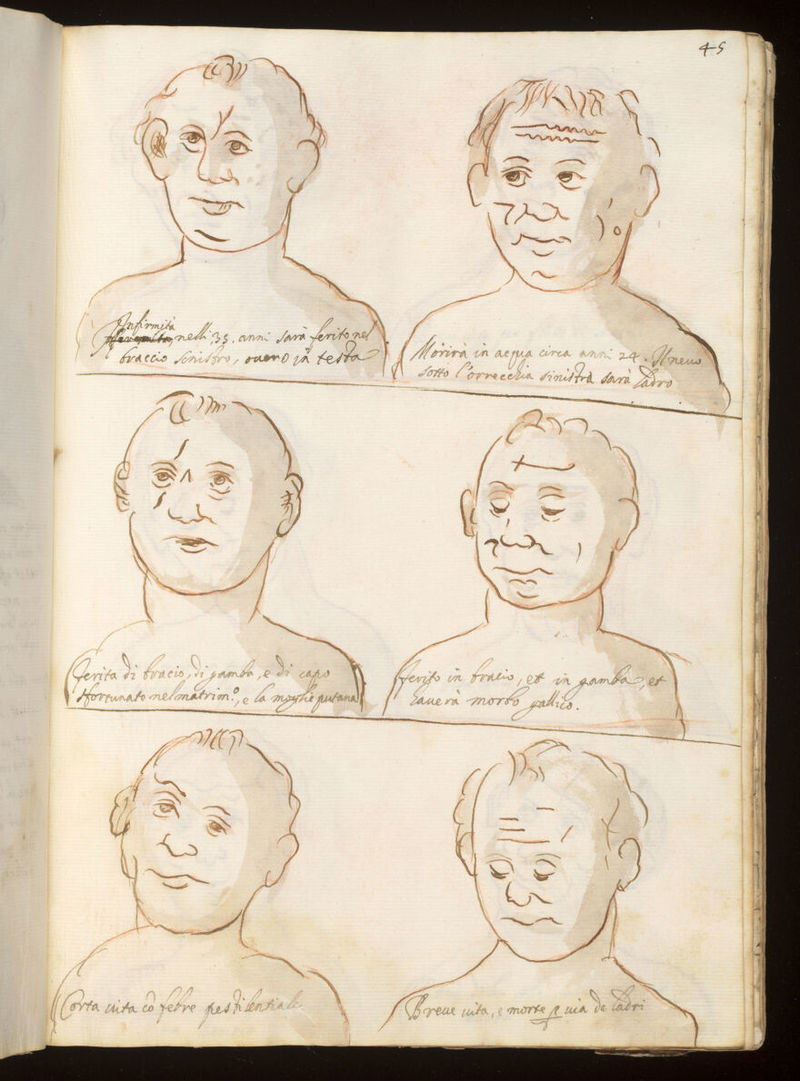 45
Infirmità
nelli 35. anni sarà ferito nel
braccio sinistro, overo in testa
Morirà in acqua circa anni 24. Il nevo
sotto l'orrecchia sinistra sarà ladro
ferita di bracio, di gamba, e di capo
sfortunato nel matrim.º, e la moglie putana
ferito in bracio, et in gamba, et
haverà morbo gallico.
Corta vita cō febre pestilentiale
Breve vita, e morte p via de ladri